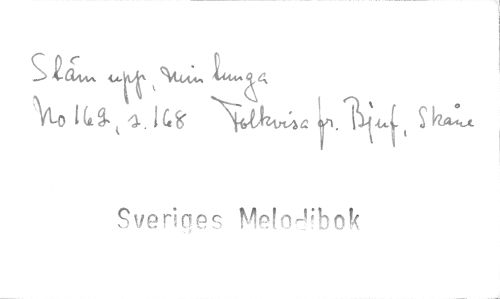 Stäm upp, min lunga
No 162, s. 168 Folkvisa fr. Bjuf, Skåne
Sveriges Melodibok